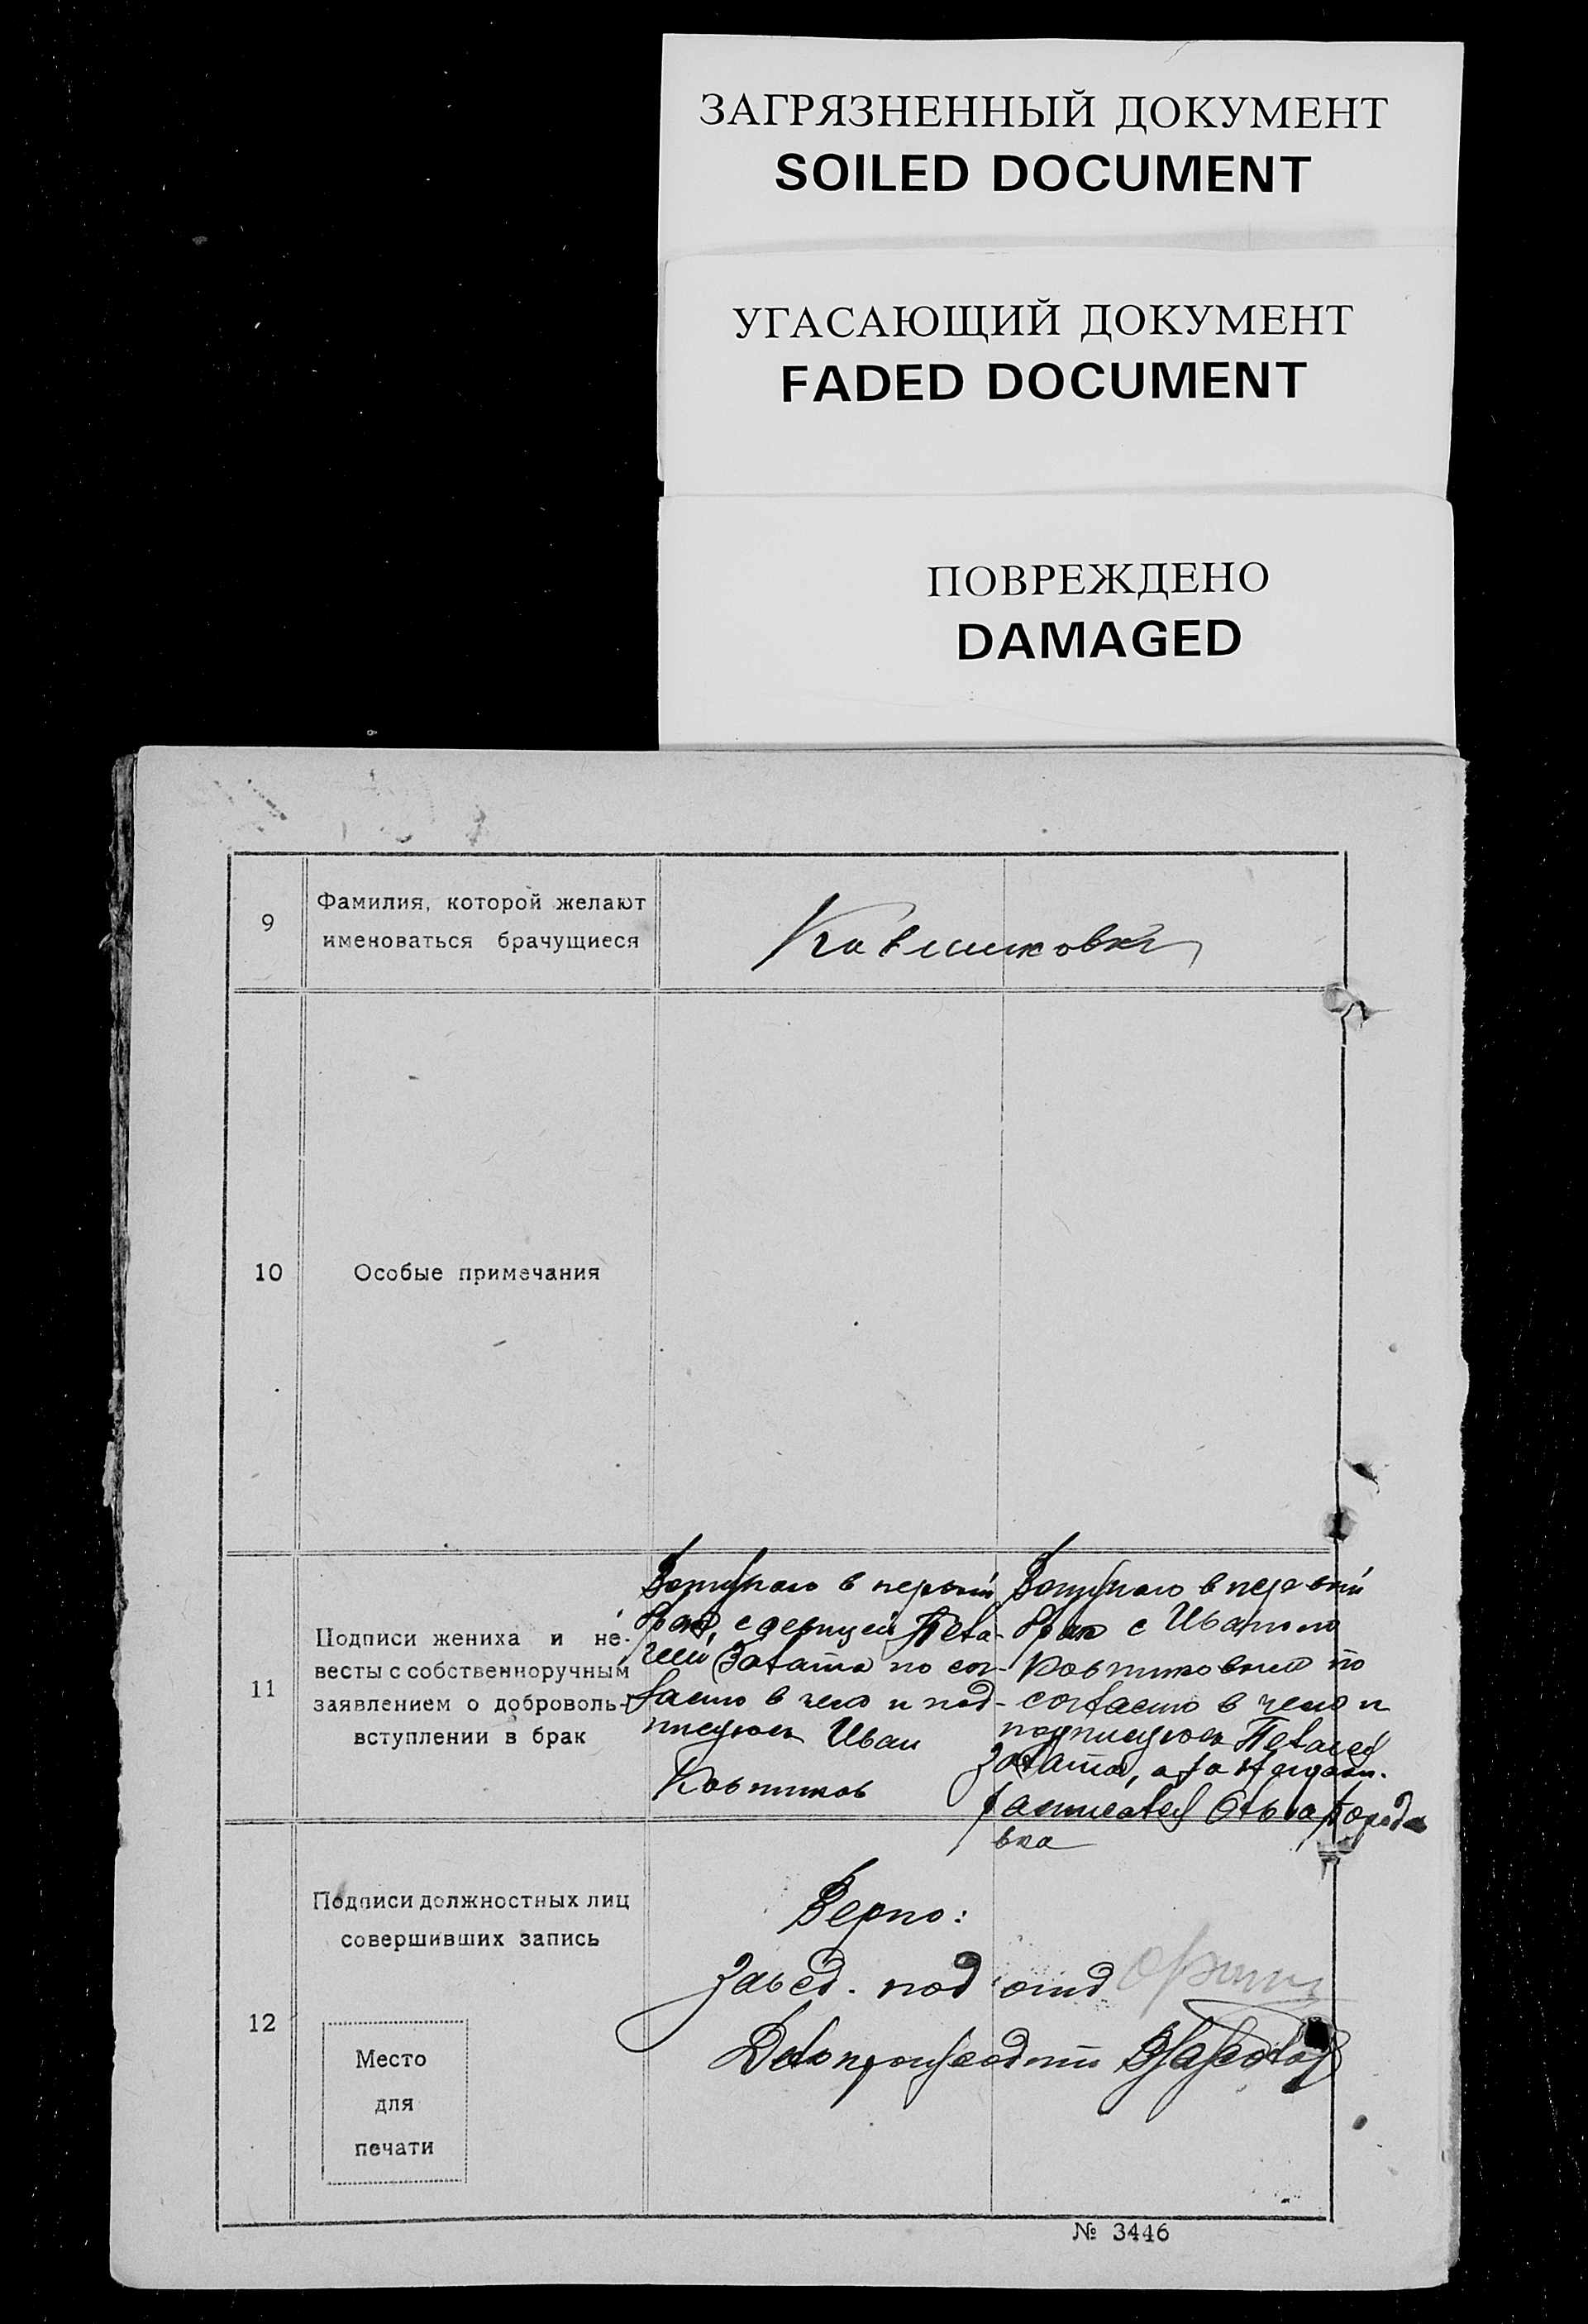 ЗАГРЯЗНЕННЫЙ ДОКУМЕНТ
SOILED DOCUMENT
УГАСАЮЩИЙ ДОКУМЕНТ
FADED DOCUMENT
ПОВРЕЖДЕНО
DAMAGED
9
Фамилия, которой желают
именоваться брачущиеся
10
Особые примечания
11
Подписи жениха и не-
весты с собственноручным
заявлением о доброволь-
вступлении в брак
Вступаю в первый
брак, с девицей
по сог-
ласию в чем и под-
писуюсь Иван
Ковтиков
Вступаю в первый
брак с Иваном
Ковтиковым по
согласию в чем и
подписуюсь Пелагея
, а за неграм.
Ольга Борода
вка
12
Подписи должностных лиц
совершивших запись
Место
для
печати
Верно:
Завед. под отд
Делопроизводит
№ 3446